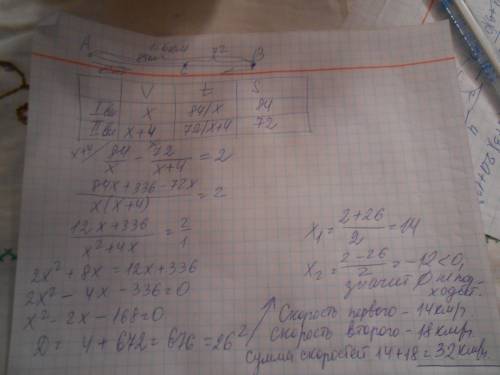 A 72 B
C
V t S
I вел x 84/x 84
II вел x+4 72/x+4 72
x+4/ 84/x - 72/(x+4) = 2
(84x+336-72x)/(x(x+4)) = 2
(12x+336)/(x²+4x) = 2/1
2x²+8x=12x+336
2x²-4x-336=0
x²-2x-168=0
D= 4+672=676=26²
x₁= (2+26)/2 =14
x₂= (2-26)/2 = -12<0,
значит не под-
ходит.
Скорость первого - 14км/ч
Скорость второго - 18км/ч
Сумма скоростей 14+18=32км/ч